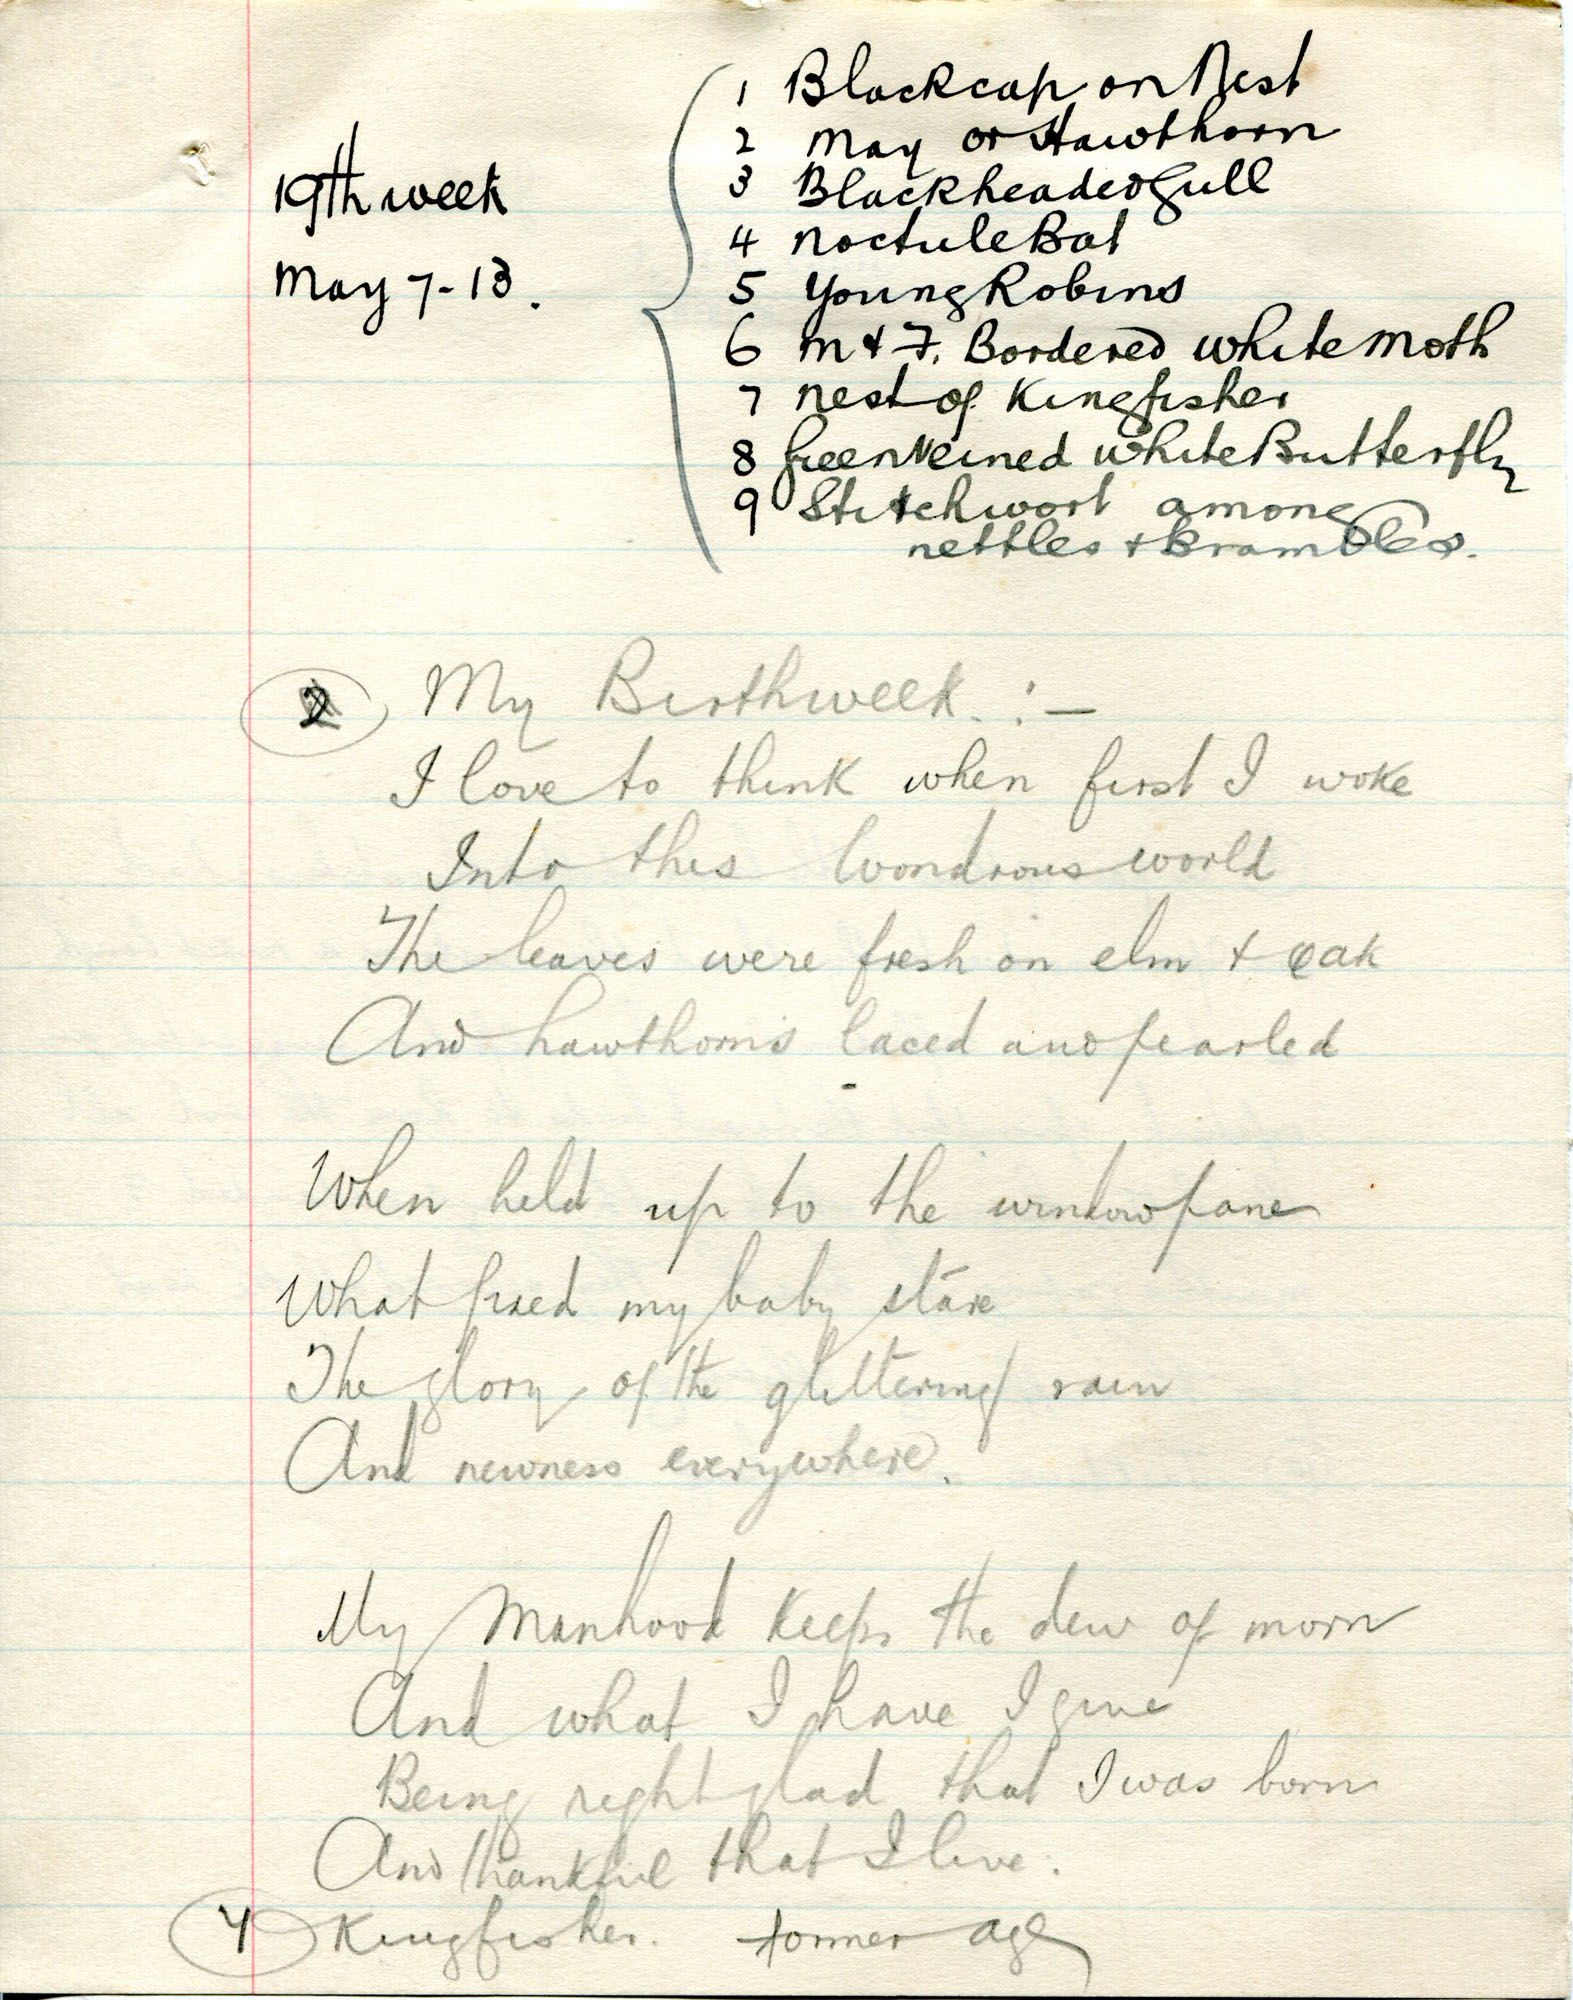 19th week
May 7-13.
1 Blackcap on Nest
2 May or Hawthorn
3 Blackheaded Gull
4 Noctule Bat
5 Young Robins
6 M & F. Bordered White Moth
7 Nest of Kingfisher
8 Green Veined White Butterfly
9 Stitchwort among
nettles & Brambles.
2 My Birthweek. :-
I love to think when first I woke
Into this wondrous world
The leaves were fresh on elm & oak
And hawthorns laced and pearled
When held up to the windowpane
What fixed my baby stare
The glory of the glittering rain
And newness everywhere.
My Manhood keeps the dew of morn
And what I have I give
Being right glad that I was born
And thankful that I live.
Kingfisher. former age